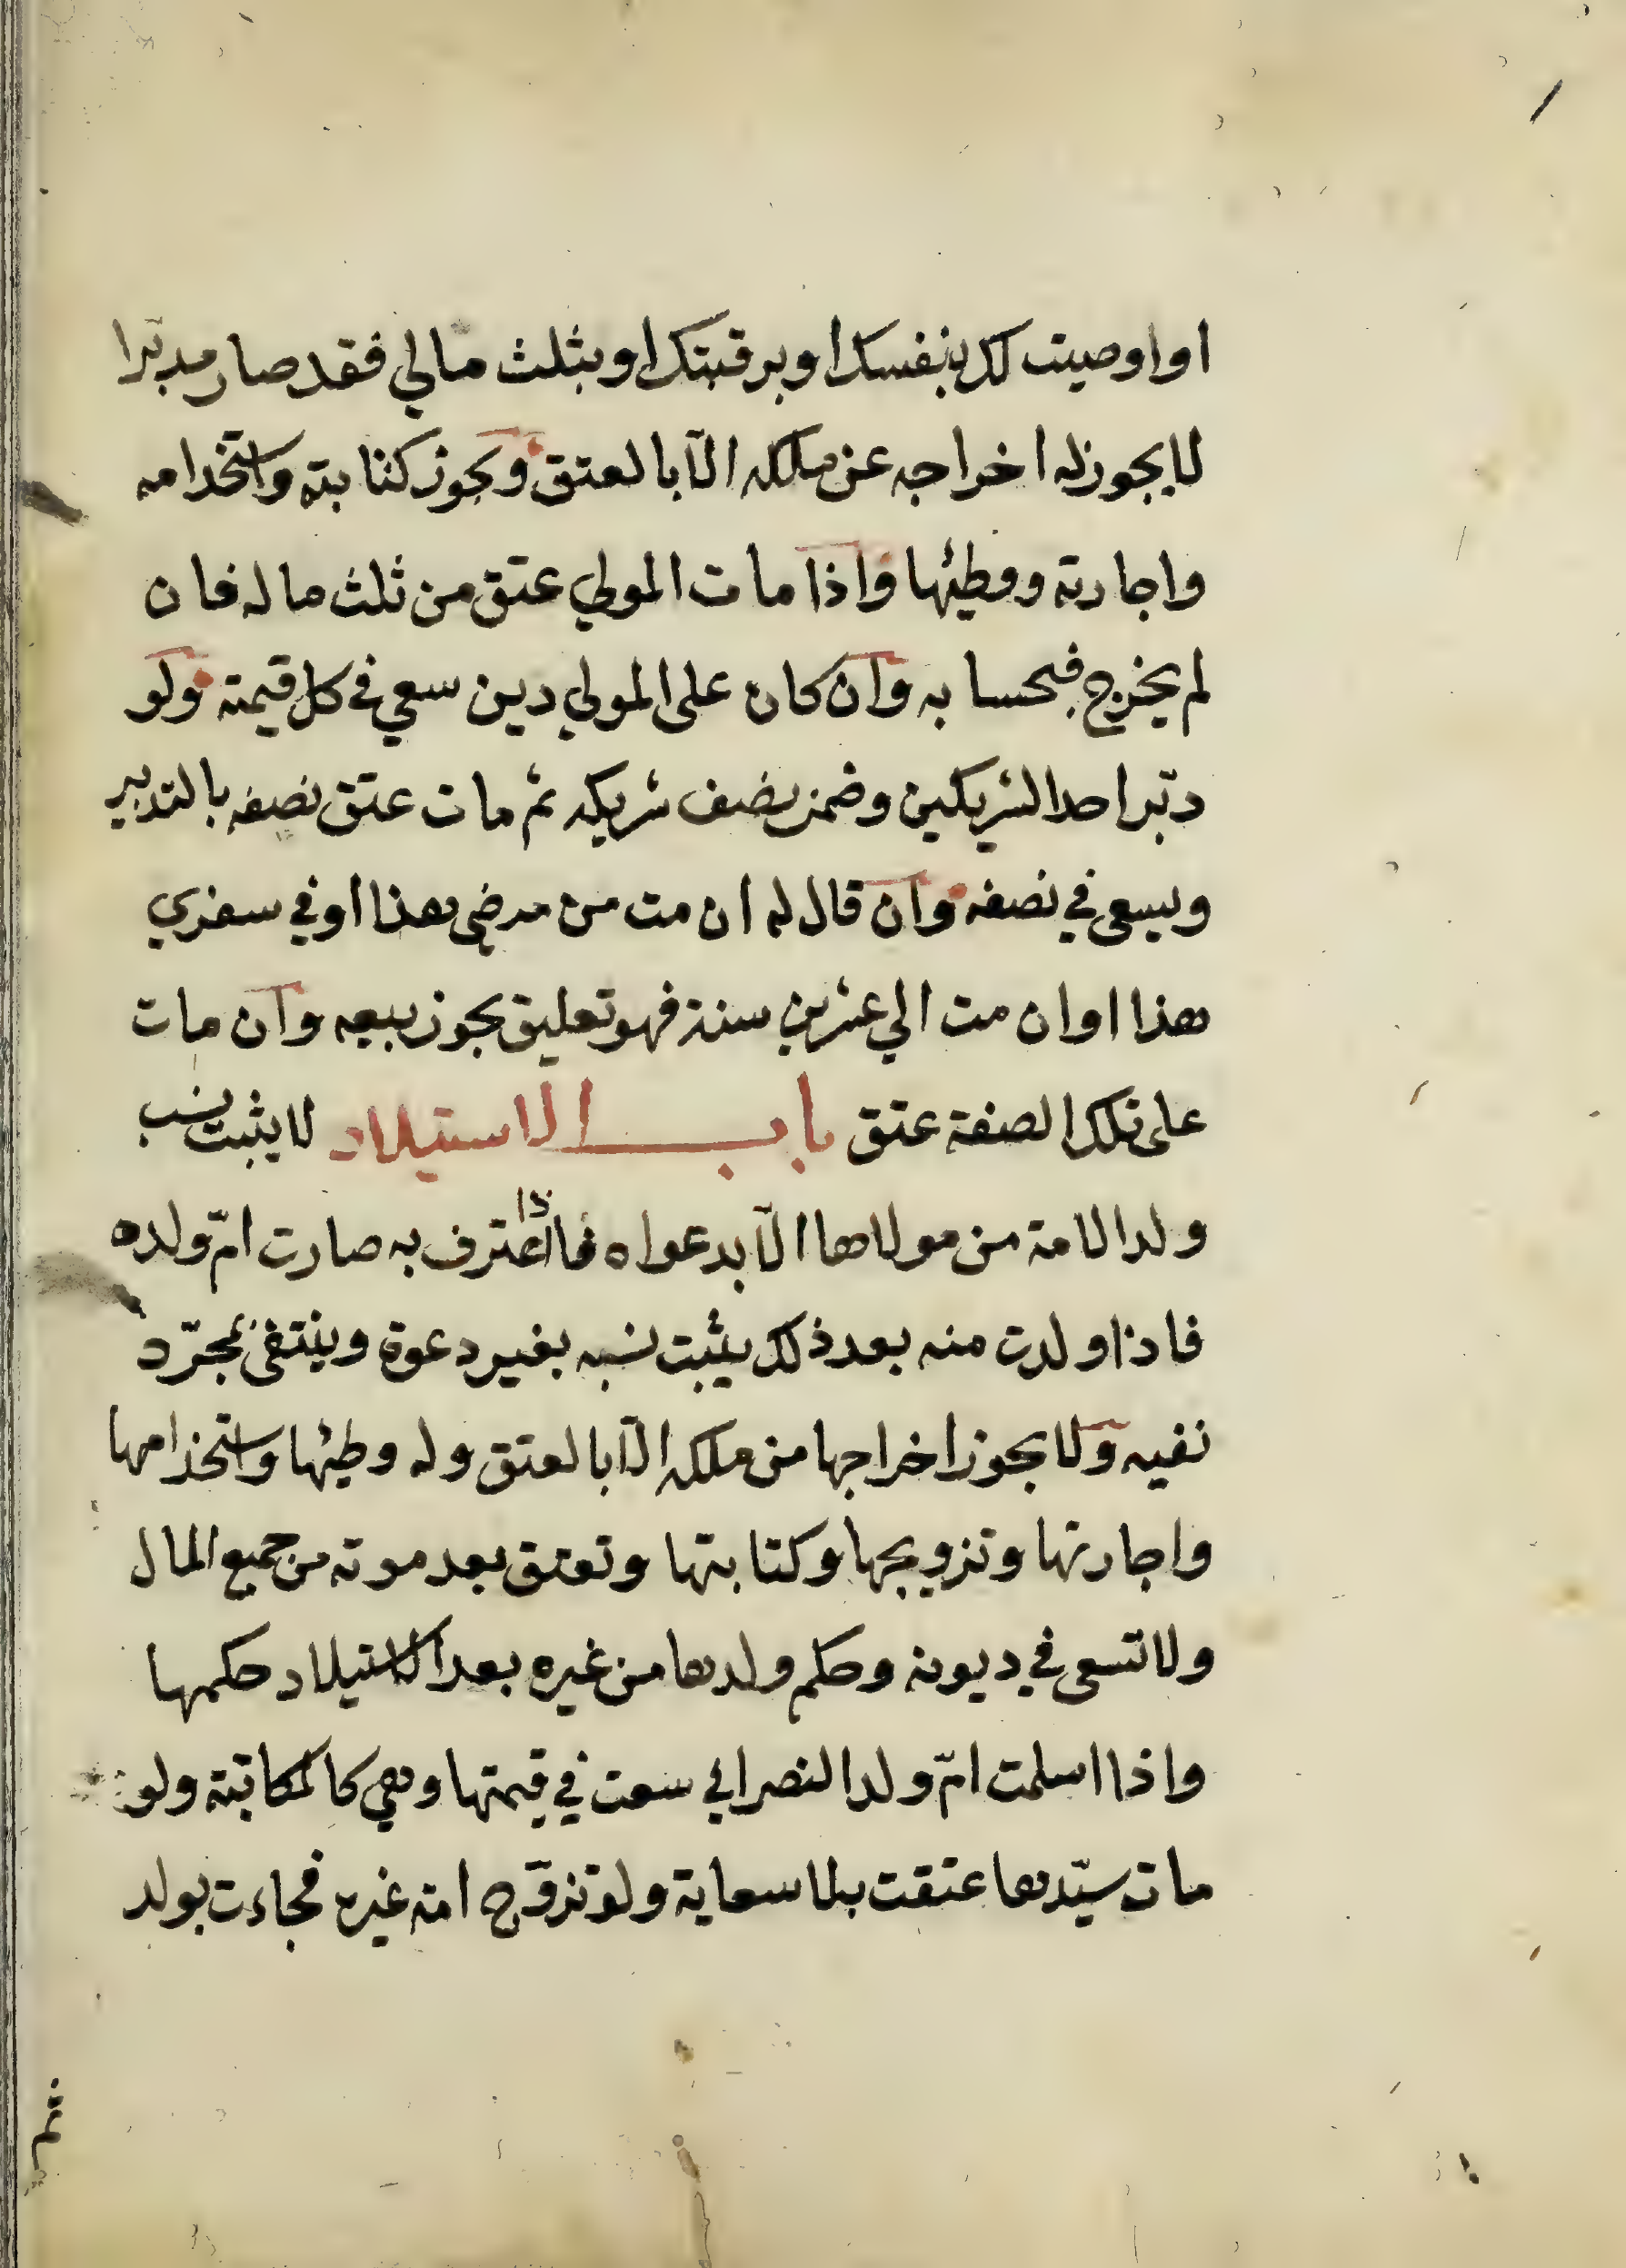 او اوصيت لك بنفسك او برقبتك او بثلث مالي فقد صار مدبّرا
لا يجوز له اخراجه عن ملكه الّا بالعتق ويجوز كتابته واستخدامه
واجارته ووطئها واذا مات المولي عتق من ثلث ماله فان
لم يخرج فبحسابه وان كان على المولي دين سعي في كل قيمته ولو
دبّر احد الشريكين وضمن نصف شريكه ثم مات عتق نصفه بالتدبير
ويسعى في نصفه وان قال له ان مت من مرضي هذا او في سفري
هذا او ان مت الي عشرين سنة فهو تعليق يجوز بيعه وان مات
على تلك الصفة عتق باب الاستيلاد لا يثبت نسب
ولد الامة من مولاها الّا بدعواه فاذا اعترف به صارت امّ ولده
فاذا ولدت منه بعد ذلك يثبت نسبه بغير دعوة وينتفى بمجرّد
نفيه ولا يجوز اخراجها من ملكه الّا بالعتق وله وطيئها واستخدامها
واجارتها وتزويجها وكتابتها وتعتق بعد موته من جميع المال
ولا تسعى في ديونه وحكم ولدها من غيره بعد الاستيلاد حكمها
واذا اسلمت امّ ولد النصراني سعت في قيمتها وهي كالمكاتبة ولو
مات سيّدها عتقت بلا سعاية ولو تزوّج امة غيره فجاءت بولد